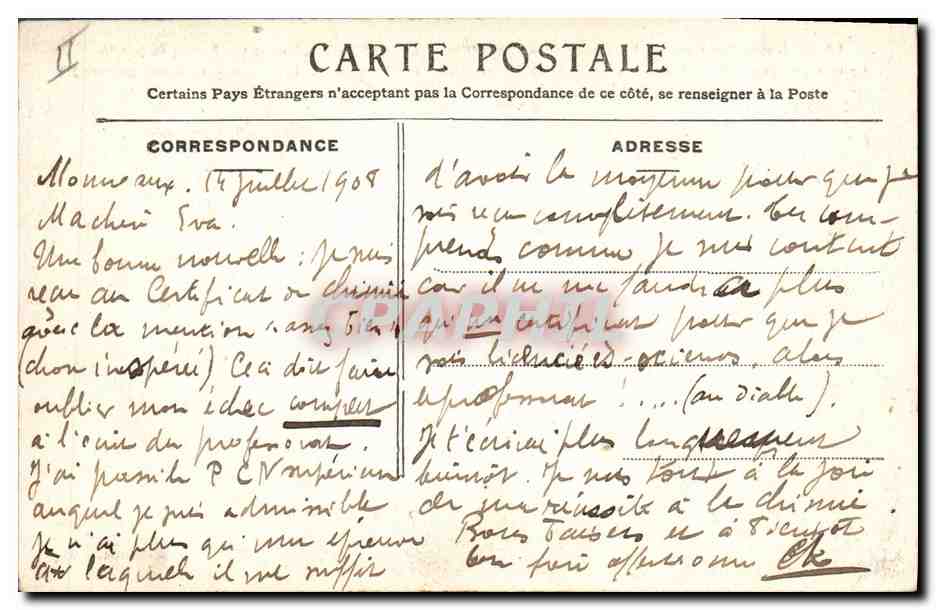 II
CARTE POSTALE
Certains Pays Étrangers n'acceptent pas la Correspondance de ce côté, se renseigner à la Poste
CORRESPONDANCE
14 juillet 1908
Ma chère Eva.
Une bonne nouvelle : Je suis
reçu au Certificat de chimie
avec la mention "assez bien"
(chose inespérée) Ceci doit faire
oublier mon échec complet
à l'écrit du professorat.
J'ai passé le P C N supérieur
auquel je suis admissible
Je n'ai plus qu'une épreuve
à laquelle il me suffit
ADRESSE
d'avoir la moyenne pour que je
sois reçu complètement. Tu com-
prends comme je suis content
car il ne me faudra plus
qu'un certificat pour que je
sois licencié ès-sciences, alors
le professorat !..... (au diable).
Je t'écrirai plus longuement
bientôt. Je suis tout à la joie
de ma réussite à la chimie
Bons baisers et à bientôt
ton frère affectionné
CARAPHIL